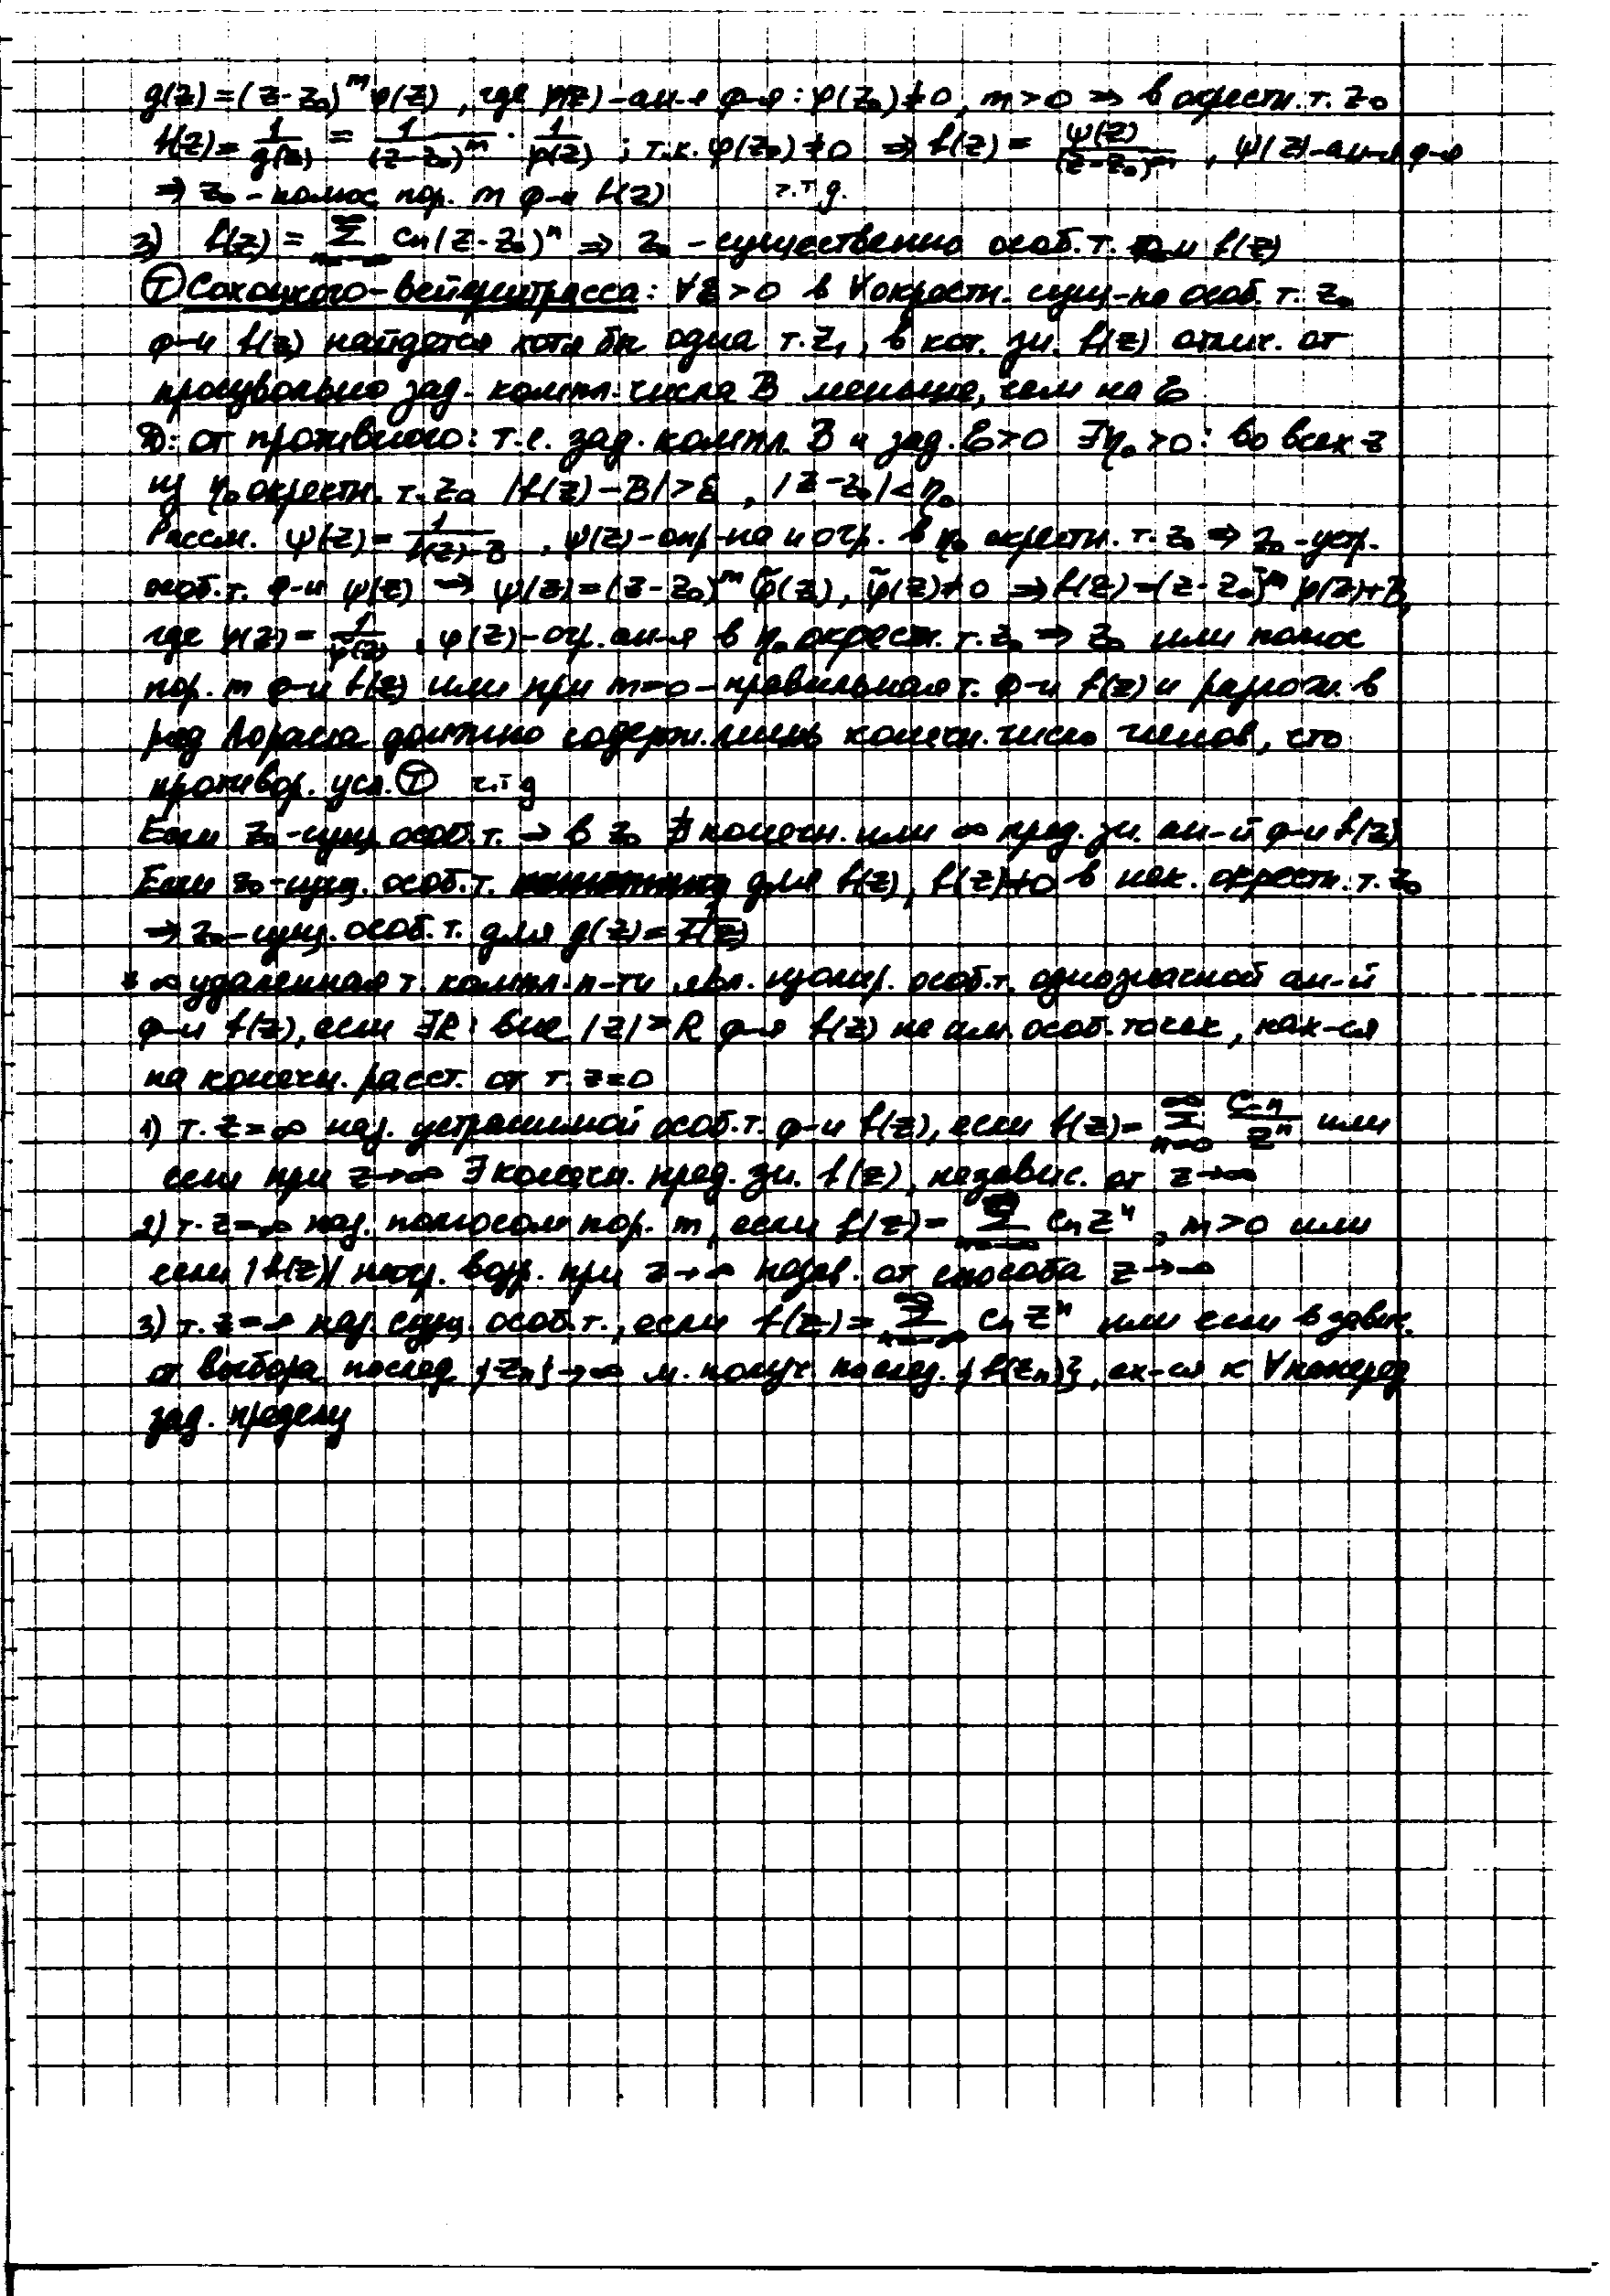 g(z) = (z-z₀)ᵐ φ(z), где φ(z) - ан-я ф-я: φ(z₀)≠0, m>0 ⇒ в окрестн. т. z₀
f(z) = 1/g(z) = 1/(z-z₀)ᵐ · 1/φ(z); т.к. φ(z₀)≠0 ⇒ f(z) = ψ(z)/(z-z₀)ᵐ, ψ(z)-ан-я ф-я
⇒ z₀ - полюс пор. m ф-и f(z) ч.т.д.
3) f(z) = ∑_{n=-∞}^{∞} Cₙ(z-z₀)ⁿ ⇒ z₀ - существенно особ. т. ф-и f(z)
Ⓣ Сохоцкого-Вейерштрасса: ∀ε>0 в ∀окрестн. сущ-но особ. т. z₀
ф-и f(z) найдется хотя бы одна т. z₁, в кот. зн. f(z) отлич. от
произвольно зад. компл. числа B меньше, чем на ε
Д: от противного: т.е. зад. компл. B и зад. ε>0 ∃η₀>0: во всех z
из η₀ окрестн. т. z₀ |f(z)-B|>ε, |z-z₀|<η₀
Рассм. ψ(z) = 1/(f(z)-B), ψ(z)-опр-на и огр. в η₀ окрестн. т. z₀ ⇒ z₀-устр.
особ. т. ф-и ψ(z) ⇒ ψ(z)=(z-z₀)ᵐ φ̃(z), φ̃(z)≠0 ⇒ f(z)=(z-z₀)⁻ᵐ φ(z)+B,
где φ(z) = 1/φ̃(z), φ(z)-огр. ан-я в η₀ окрест. т. z₀ ⇒ z₀ или полюс
пор. m ф-и f(z) или при m=0 - правильная т. ф-и f(z) и разлож. в
ряд Лорана должно содерж. лишь конечн. число членов, что
противор. усл. Ⓣ ч.т.д
Если z₀-сущ. особ. т. ⇒ в z₀ ∄ конечн. или ∞ пред. зн. ан-й ф-и f(z)
Если z₀-сущ. особ. т. для f(z), f(z)≠0 в нек. окрестн. т. z₀
⇒ z₀-сущ. особ. т. для g(z) = 1/f(z)
* ∞ удаленная т. компл. п-ти явл. изолир. особ. т. однозначной ан-й
ф-и f(z), если ∃R: вне |z|>R ф-я f(z) не им. особ. точек, нах-ся
на конечн. расст. от т. z=0
1) т. z=∞ наз. устранимой особ. т. ф-и f(z), если f(z) = ∑_{n=0}^{∞} C₋ₙ/zⁿ или
если при z→∞ ∃ конечн. пред. зн. f(z), независ. от z→∞
2) т. z=∞ наз. полюсом пор. m, если f(z) = ∑ Cₙzⁿ, m>0 или
если |f(z)| неогр. возр. при z→∞ незав. от способа z→∞
3) т. z=∞ наз. сущ. особ. т., если f(z) = ∑_{n=-∞}^{∞} Cₙzⁿ или если в завис.
от выбора послед. {zₙ}→∞ м. получ. послед. {f(zₙ)}, сх-ся к ∀наперед
зад. пределу